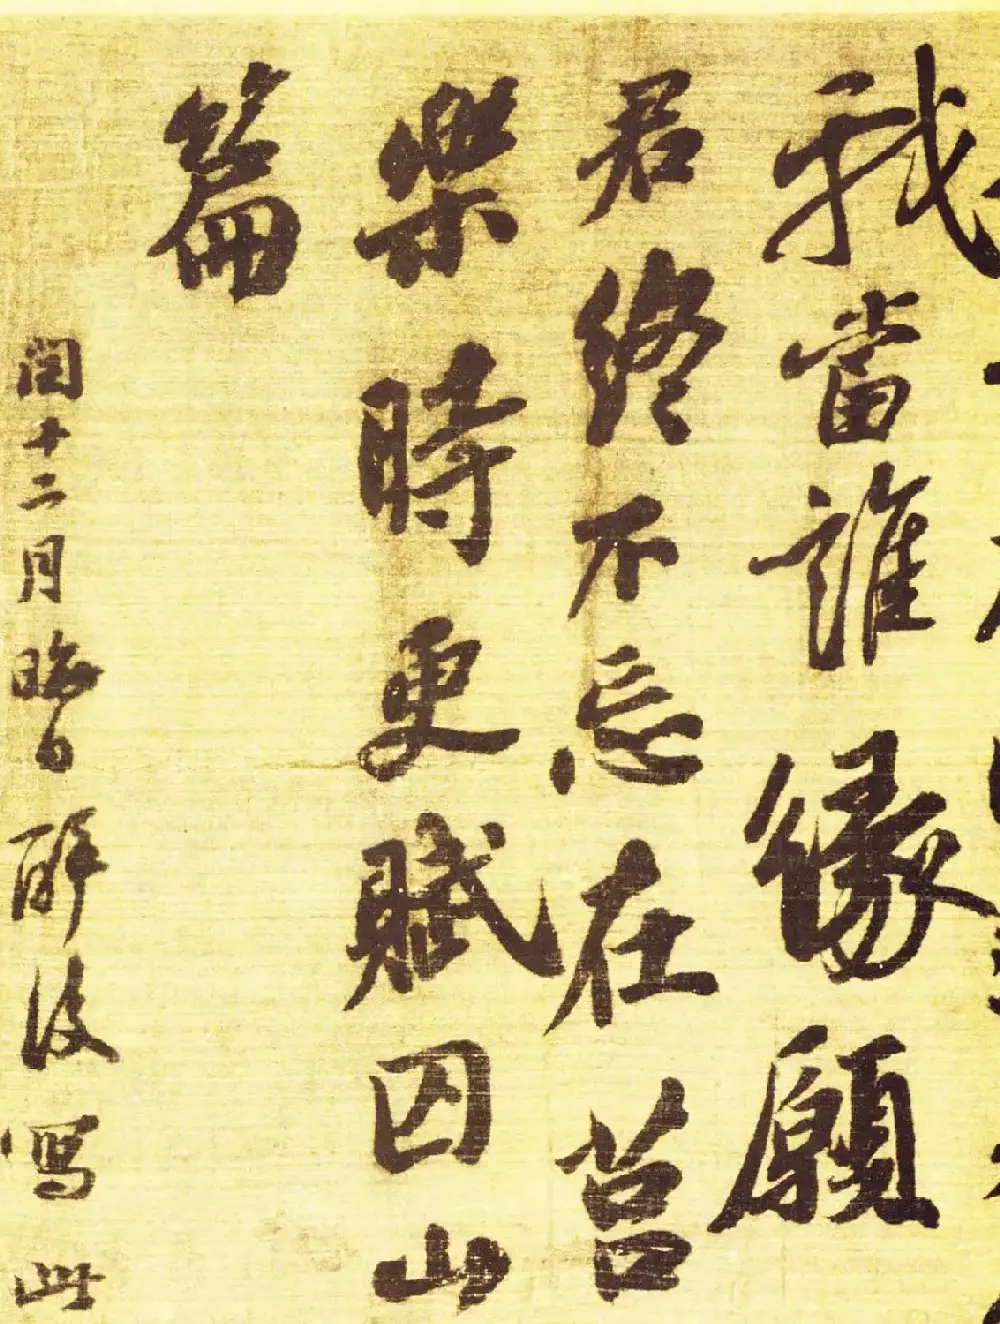 我當誰緣願
君終不忘在莒
樂時更賦囚山
篇
閏十二月晦日醉後寫此